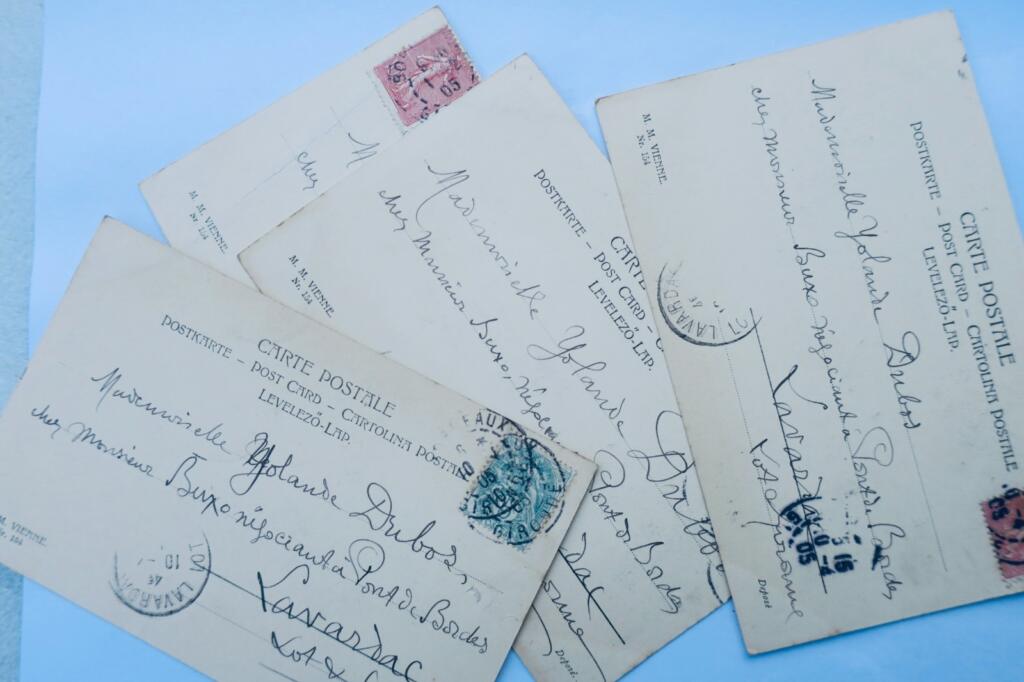 05
M
chez
M. M. VIENNE.
Nr. 154
CARTE
POSTKARTE – POST CARD –
LEVELEZŐ-LAP.
Mademoiselle Yolande Dubos
chez Monsieur Buxo, négoc
Pont de Bordes
M. M. VIENNE.
Nr. 154
Déposé.
CARTE POSTALE
POSTKARTE – POST CARD – CARTOLINA POSTALE
LEVELEZŐ-LAP.
Mademoiselle Yolande Dubos
chez Monsieur Buxo négociant à Pont de Bordes
Lavardac
Lot et Garonne
M. M. VIENNE.
Nr. 154
LAVARDAC
05
Déposé
CARTE POSTALE
POSTKARTE – POST CARD – CARTOLINA POSTALE
LEVELEZŐ-LAP.
Mademoiselle Yolande Dubos
chez Monsieur Buxo négociant à Pont de Bordes
Lavardac
Lot &
M. VIENNE.
154
GIRONDE
LAVARDAC LOT
10